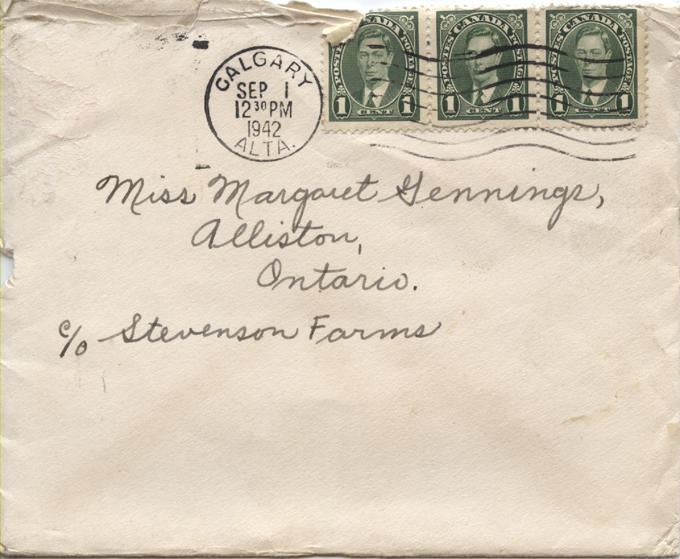 CALGARY
SEP 1
12 30 PM
1942
ALTA.
POSTES CANADA POSTAGE
1 CENT 1
POSTES CANADA POSTAGE
1 CENT 1
POSTES CANADA POSTAGE
1 CENT 1
Miss Margaret Jennings,
Alliston,
Ontario.
c/o Stevenson Farms